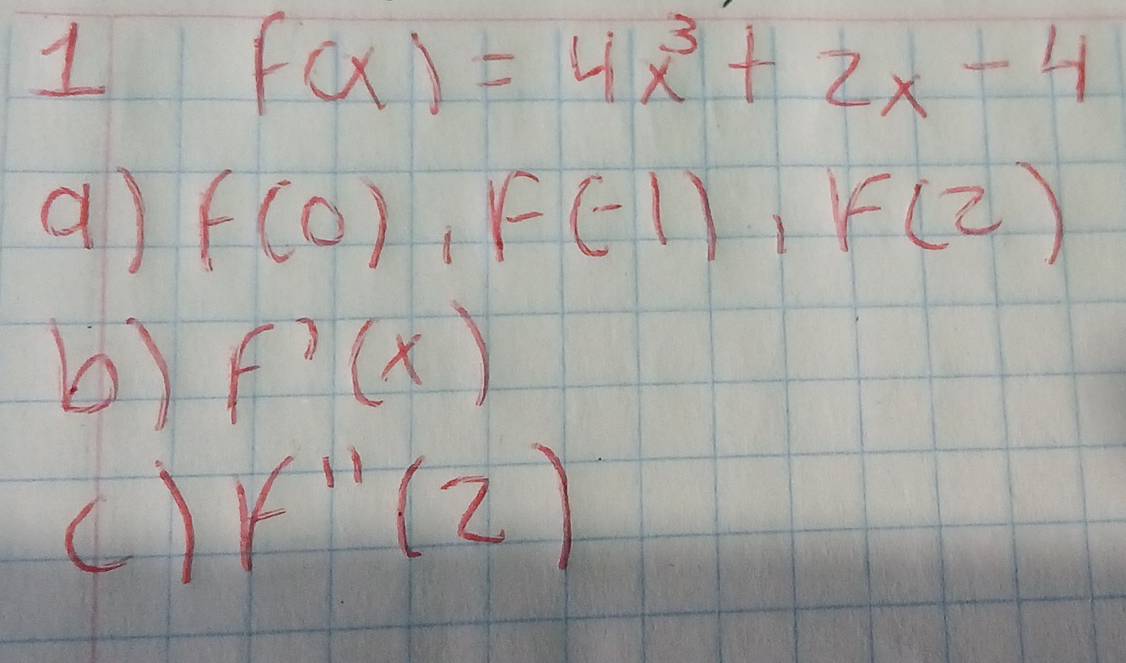 1 f(x) = 4x³ + 2x - 4
a) f(0), F(-1), F(2)
b) F'(x)
c) F"(2)